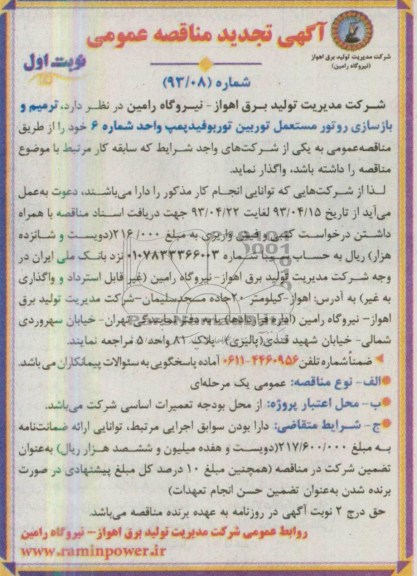 آگهی تجدید مناقصه عمومی
شرکت مدیریت تولید برق اهواز
(نیروگاه رامین)
نوبت اول
شماره (۹۳/۰۸)
شرکت مدیریت تولید برق اهواز- نیروگاه رامین در نظر دارد، ترمیم و
بازسازی روتور مستعمل توربین توربوفیدپمپ واحد شماره ۶ خود را از طریق
مناقصه‌عمومی به یکی از شرکت‌های واجد شرایط که سابقه کار مرتبط با موضوع
مناقصه را داشته باشد، واگذار نماید.
لـذا از شرکت‌هایی که توانایی انجام کار مذکور را دارا می‌باشند، دعوت به‌عمل
می‌آید از تاریخ ۹۳/۰۴/۱۵ لغایت ۹۳/۰۴/۲۲ جهت دریافت اسناد مناقصه با همراه
داشتن درخواست کتبی و فیش واریزی به مبلغ ۲۱۶/۰۰۰(دویست و شانزده
هزار) ریال به حساب سیبا شماره ۰۱۰۷۸۳۳۳۶۶۰۰۳ نزد بانک ملی ایران در
وجه شرکت مدیریت تولید برق اهواز- نیروگاه رامین (غیر قابل استرداد و واگذاری
به غیر) به آدرس: اهواز-کیلومتر ۲۰جاده مسجدسلیمان-شرکت مدیریت تولید برق
اهواز- نیروگاه رامین (اداره قراردادها) یا به دفتر نمایندگی تهران- خیابان سهروردی
شمالی- خیابان شهید قندی(پالیزی)- پلاک ۸۱ واحد ۵ مراجعه نمایند.
ضمناً شماره تلفن ۴۴۶۰۹۵۶-۰۶۱۱ آماده پاسخگویی به سئوالات پیمانکاران می‌باشد.
الف- نوع مناقصه: عمومی یک مرحله‌ای
ب- محل اعتبار پروژه: از محل بودجه تعمیرات اساسی شرکت می‌باشد.
ج- شرایط متقاضی: دارا بودن سوابق اجرایی مرتبط، توانایی ارائه ضمانت‌نامه
به مبلغ ۲۱۷/۶۰۰/۰۰۰(دویست و هفده میلیون و ششصد هزار ریال) به‌عنوان
تضمین شرکت در مناقصه (همچنین مبلغ ۱۰ درصد کل مبلغ پیشنهادی در صورت
برنده شدن به‌عنوان تضمین حسن انجام تعهدات)
حق درج ۲ نوبت آگهی در روزنامه به عهده برنده مناقصه می‌باشد.
روابط عمومی شرکت مدیریت تولید برق اهواز- نیروگاه رامین
www.raminpower.ir